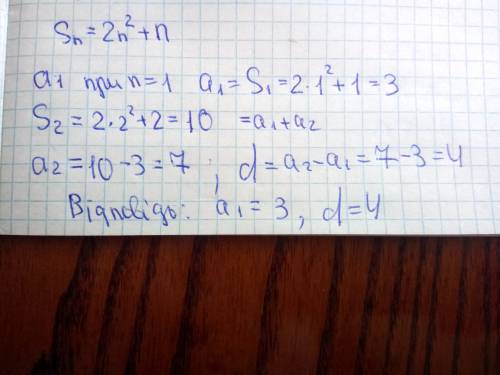 Sn = 2n² + n
a1 при n = 1 a1 = S1 = 2·1² + 1 = 3
S2 = 2·2² + 2 = 10 = a1 + a2
a2 = 10 - 3 = 7 ; d = a2 - a1 = 7 - 3 = 4
Відповідь: a1 = 3, d = 4